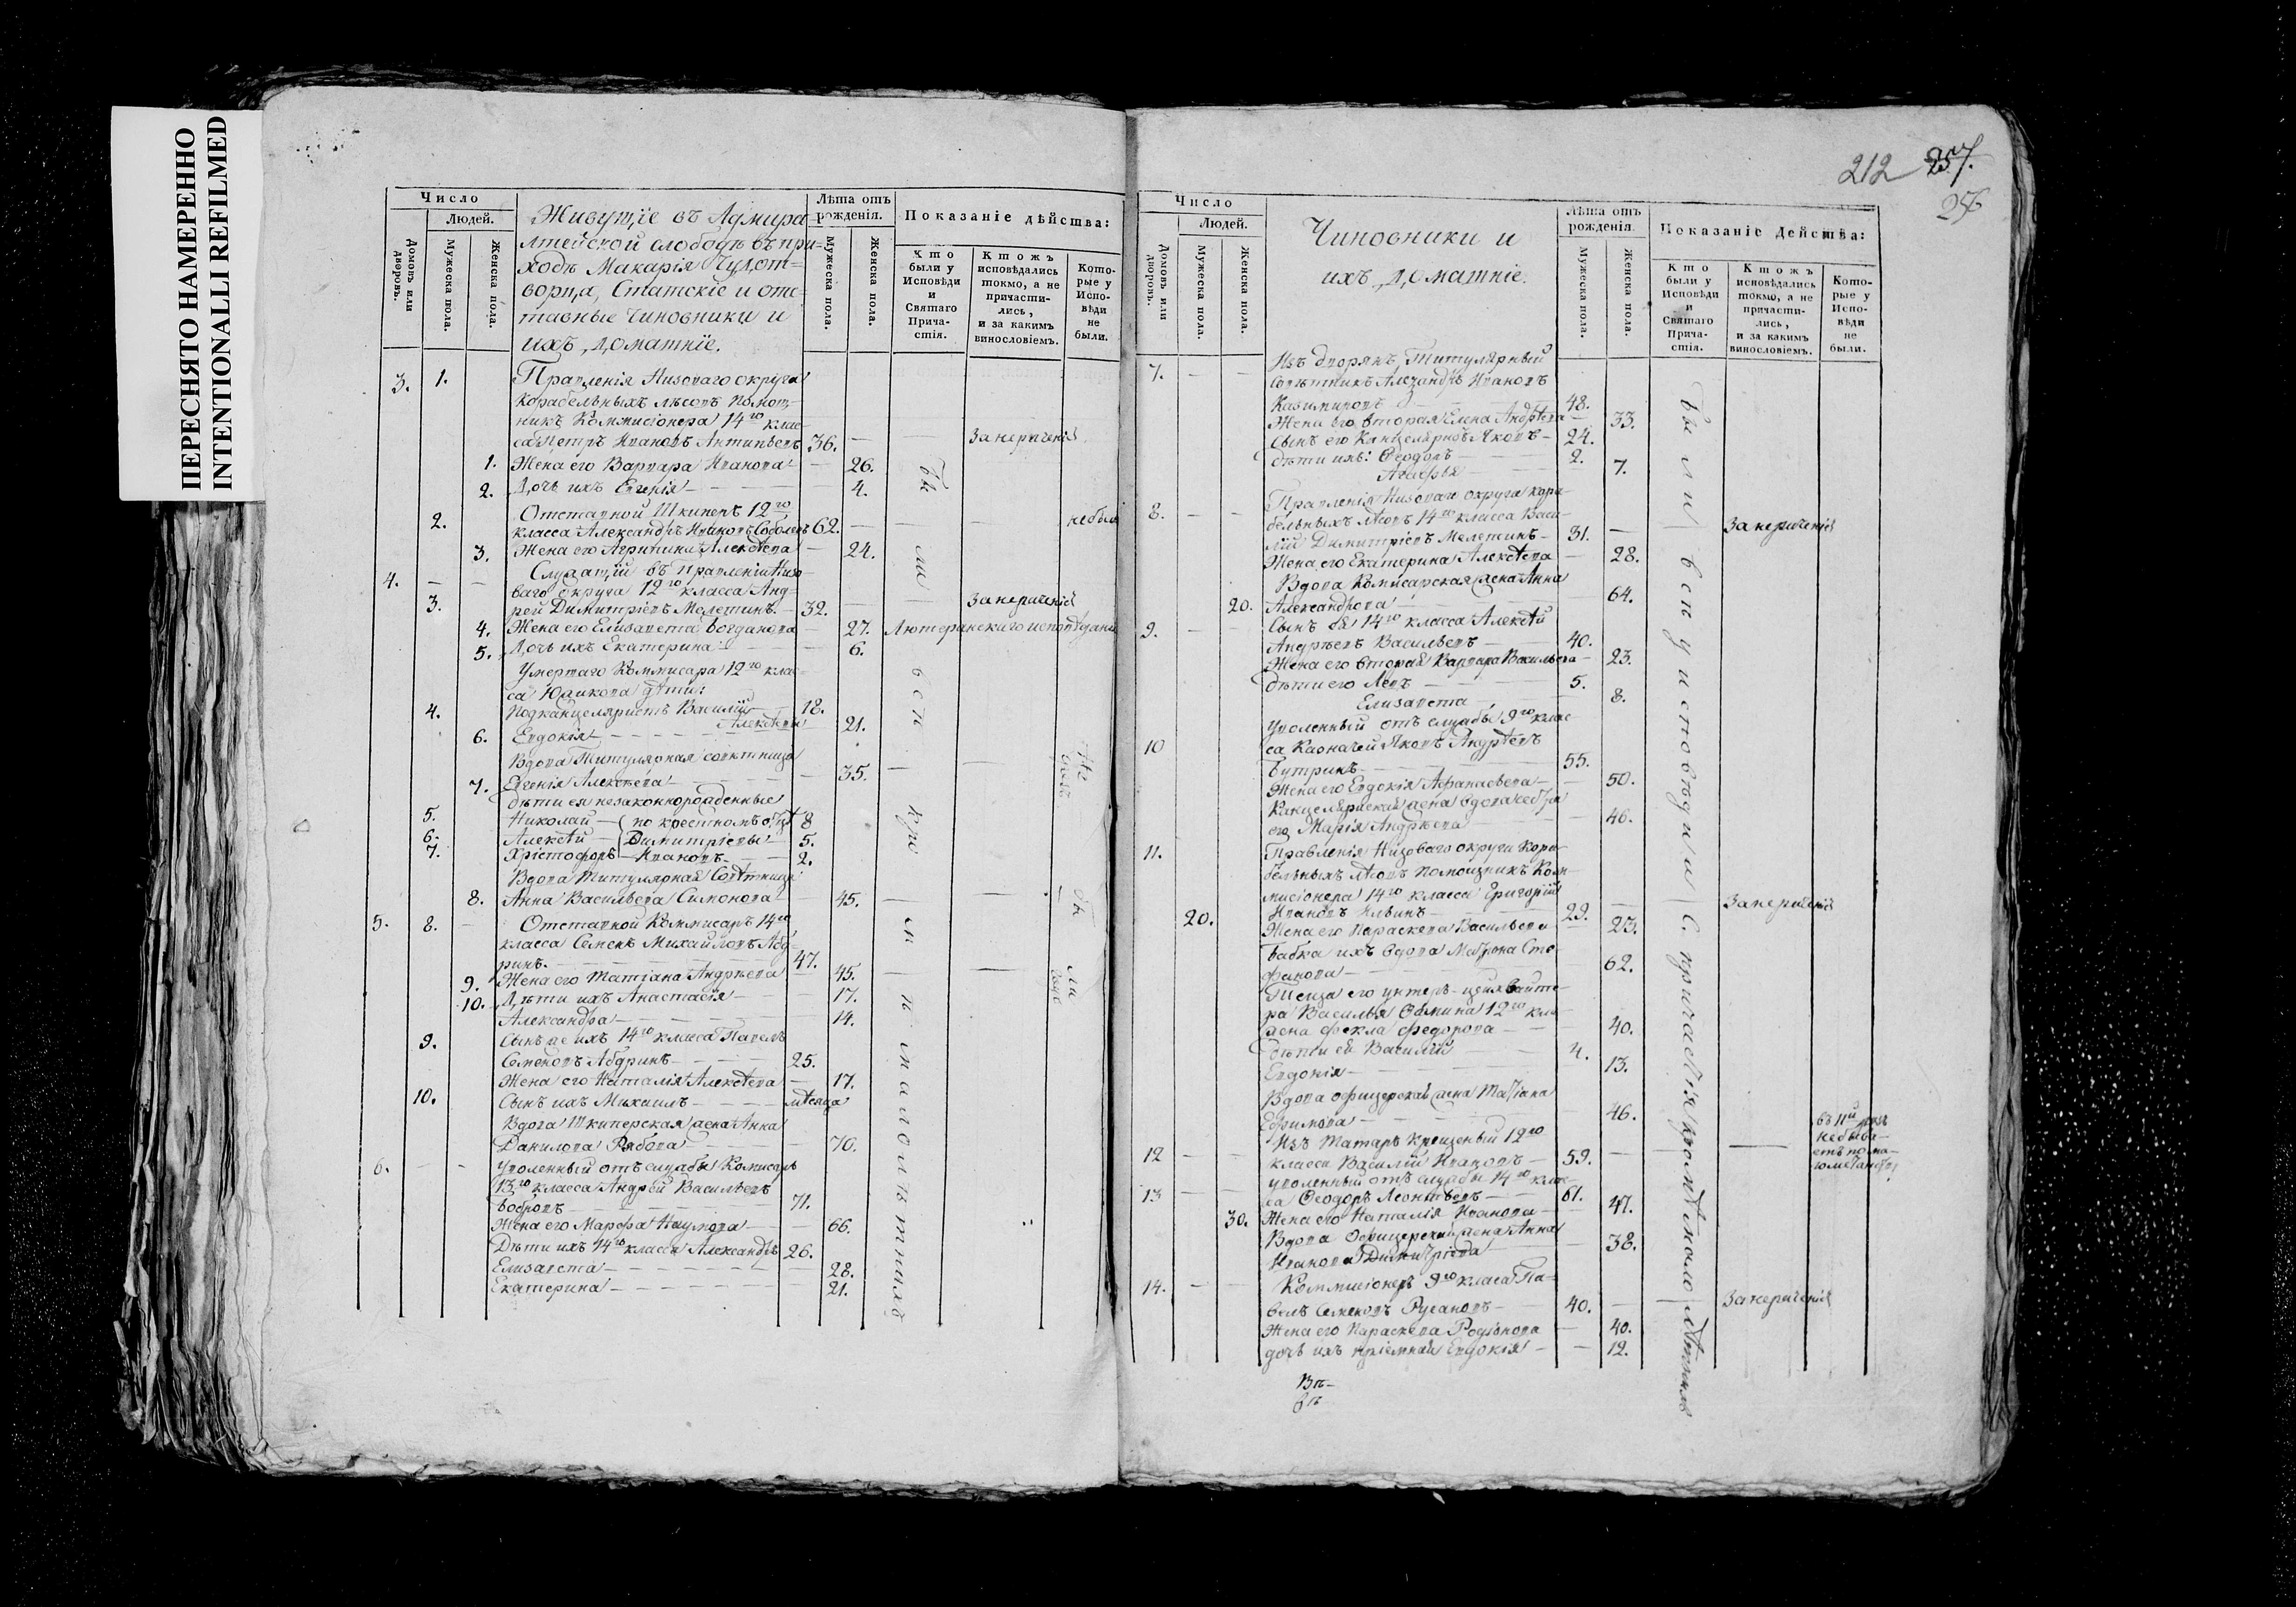 ПЕРЕСНЯТО НАМЕРЕННО
INTENTIONALLI REFILMED
Число
Людей.
Домовъ или дворовъ.
Мужеска пола.
Женска пола.
Живущіе въ Адмира
лтейской слободѣ въ при=
ходѣ Макарія Чудот=
ворца, Статскіе и отс=
тавные Чиновники и
ихъ домашніе.
Лѣта отъ рожденія.
Мужеска пола.
Женска пола.
Показаніе дѣйства:
Кто были у Исповѣди и Святаго Прича-стія.
Ктожъ исповѣдались токмо, а не причасти-лись, и за какимъ винословіемъ.
Кото-рые у Испо-вѣди не были.
3. 1. Правленія Низоваго округа
корабельныхъ лѣсовъ помощ-
никъ Коммисіонера 14го клас
са Петръ Ивановъ Антипьевъ 36. —
1. Жена его Варвара Иванова — 26.
2. Дочь ихъ Евгенія — 4.
Отставной Шкиперъ 12го
2. класса Александръ Ивановъ Соболевъ 62. — — — небылъ
3. Жена его Агрипина Алексѣева — 24.
4. — — Служащій въ правленіи Низо-
ваго округа 12го класса Анд-
3. рей Димитріевъ Мелетинъ — 32.
4. Жена его Елизавета Богданова — 27. Лютеранскаго исповѣданія
5. Дочь ихъ Екатерина — 6.
Умершаго Коммисара 12го клас-
са Юдикова дѣти:
4. Подканцеляристъ Василій — 18.
Алексѣевы
6. Евдокія — 21.
Вдова Титулярная совѣтница
7. Евгенія Алексѣева — 35. —
дѣти ея незаконнорожденные
5. Николай — по крестномъ отцѣ 8
6. Алексѣй — Димитріевы — 5.
7. Христофоръ — Ивановъ — 2.
Вдова Титулярная Совѣтница
8. Анна Васильева Симонова — 45. —
5. 8. — Отставной Коммисаръ 14го
класса Семенъ Михайловъ Абд-
ринъ. — 47.
9. Жена его Татіана Андрѣева — 45. —
10. Дѣти ихъ Анастасія — 17.
Александра — 14.
9. Сынъ же ихъ 14го класса Павелъ
Семеновъ Абдринъ — 25.
Жена его Наталія Алексѣева — 17.
10. Сынъ ихъ Михаилъ — мѣсяца
Вдова Шкиперская жена Анна
Данилова Рябова — 70.
6. — - Уволенный отъ службы Комисаръ
13го класса Андрей Васильевъ
Бобровъ — 71.
Жена его Марфа Наумова — 66.
Дѣти ихъ 14го класса Александръ 26.
Елизавета — 28.
Екатерина — 21.
212 257.
256
Число
Людей.
Домовъ или дворовъ.
Мужеска пола.
Женска пола.
Чиновники и
ихъ домашніе.
Лѣта отъ рожденія.
Мужеска пола.
Женска пола.
Показаніе Дѣйства:
Кто были у Исповѣди и Святаго Прича-стія.
Ктожъ исповѣдались токмо, а не причасти-лись, и за какимъ винословіемъ.
Кото-рые у Испо-вѣди не были.
7. — — Изъ дворянъ, Титулярный
Совѣтникъ Александръ Ивановъ
Казимировъ — 48.
Жена его вторая Елена Андрѣева — 33.
Сынъ его Канцеляристъ Яковъ — 24.
дѣти ихъ: Феодоръ — 2.
Агафья — 7.
Правленія Низоваго округа кора-
8. — — бельныхъ лѣсовъ 14го класса Васи-
лій Димитріевъ Мелетинъ — 31. —
Жена его Екатерина Алексѣева — 28.
Вдова Комисарская жена Анна
20. Александрова — 64.
9. — Сынъ ея 14го класса Алексѣй
Андрѣевъ Васильевъ — 40.
Жена его вторая Варвара Васильева — 23.
дѣти его Левъ — 5.
Елизавета — 8.
Уволенный отъ службы 9го клас
10 са Казначей Яковъ Андрѣевъ
Бутринъ — 55.
Жена его Евдокія Афанасьева — 50.
Канцелярская жена вдова сестра
его Марія Андрѣева — 46.
11. Правленія Низоваго округа Кора-
бельныхъ лѣсовъ помощникъ Ком-
мисіонера 14го класса Григорій
20. Ивановъ Ильинъ — 29. —
Жена его Параскева Васильева — 23.
Бабка ихъ вдова Матрона Сте-
фанова — 62.
Теща его унтеръ-цейхвайте-
ра Василья Фомина 12го кла
жена Фекла Федорова — 40.
дѣти ея Василій — 4.
Евдокія — 13.
Вдова офицерская жена Татіана
Ефимова — 46.
Изъ Татаръ крещеный 12го
12 — — класса Василій Ивановъ — 59. —
уволенный отъ службы 14го клас-
13 — — са Феодоръ Леонтьевъ — 61.
30. Жена его Наталія Иванова — 47.
Вдова Офицерская жена Анна
Иванова Димитріева — 38.
14. — — Коммисіонеръ 9го класа Па=
велъ Семеновъ Русановъ — 40. —
Жена его Параскева Родіонова — 40.
дочь ихъ пріемная Евдокія — — 12.